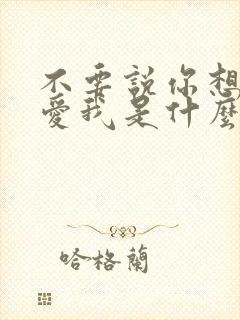 不要說你想
愛我是什麼
哈格蘭